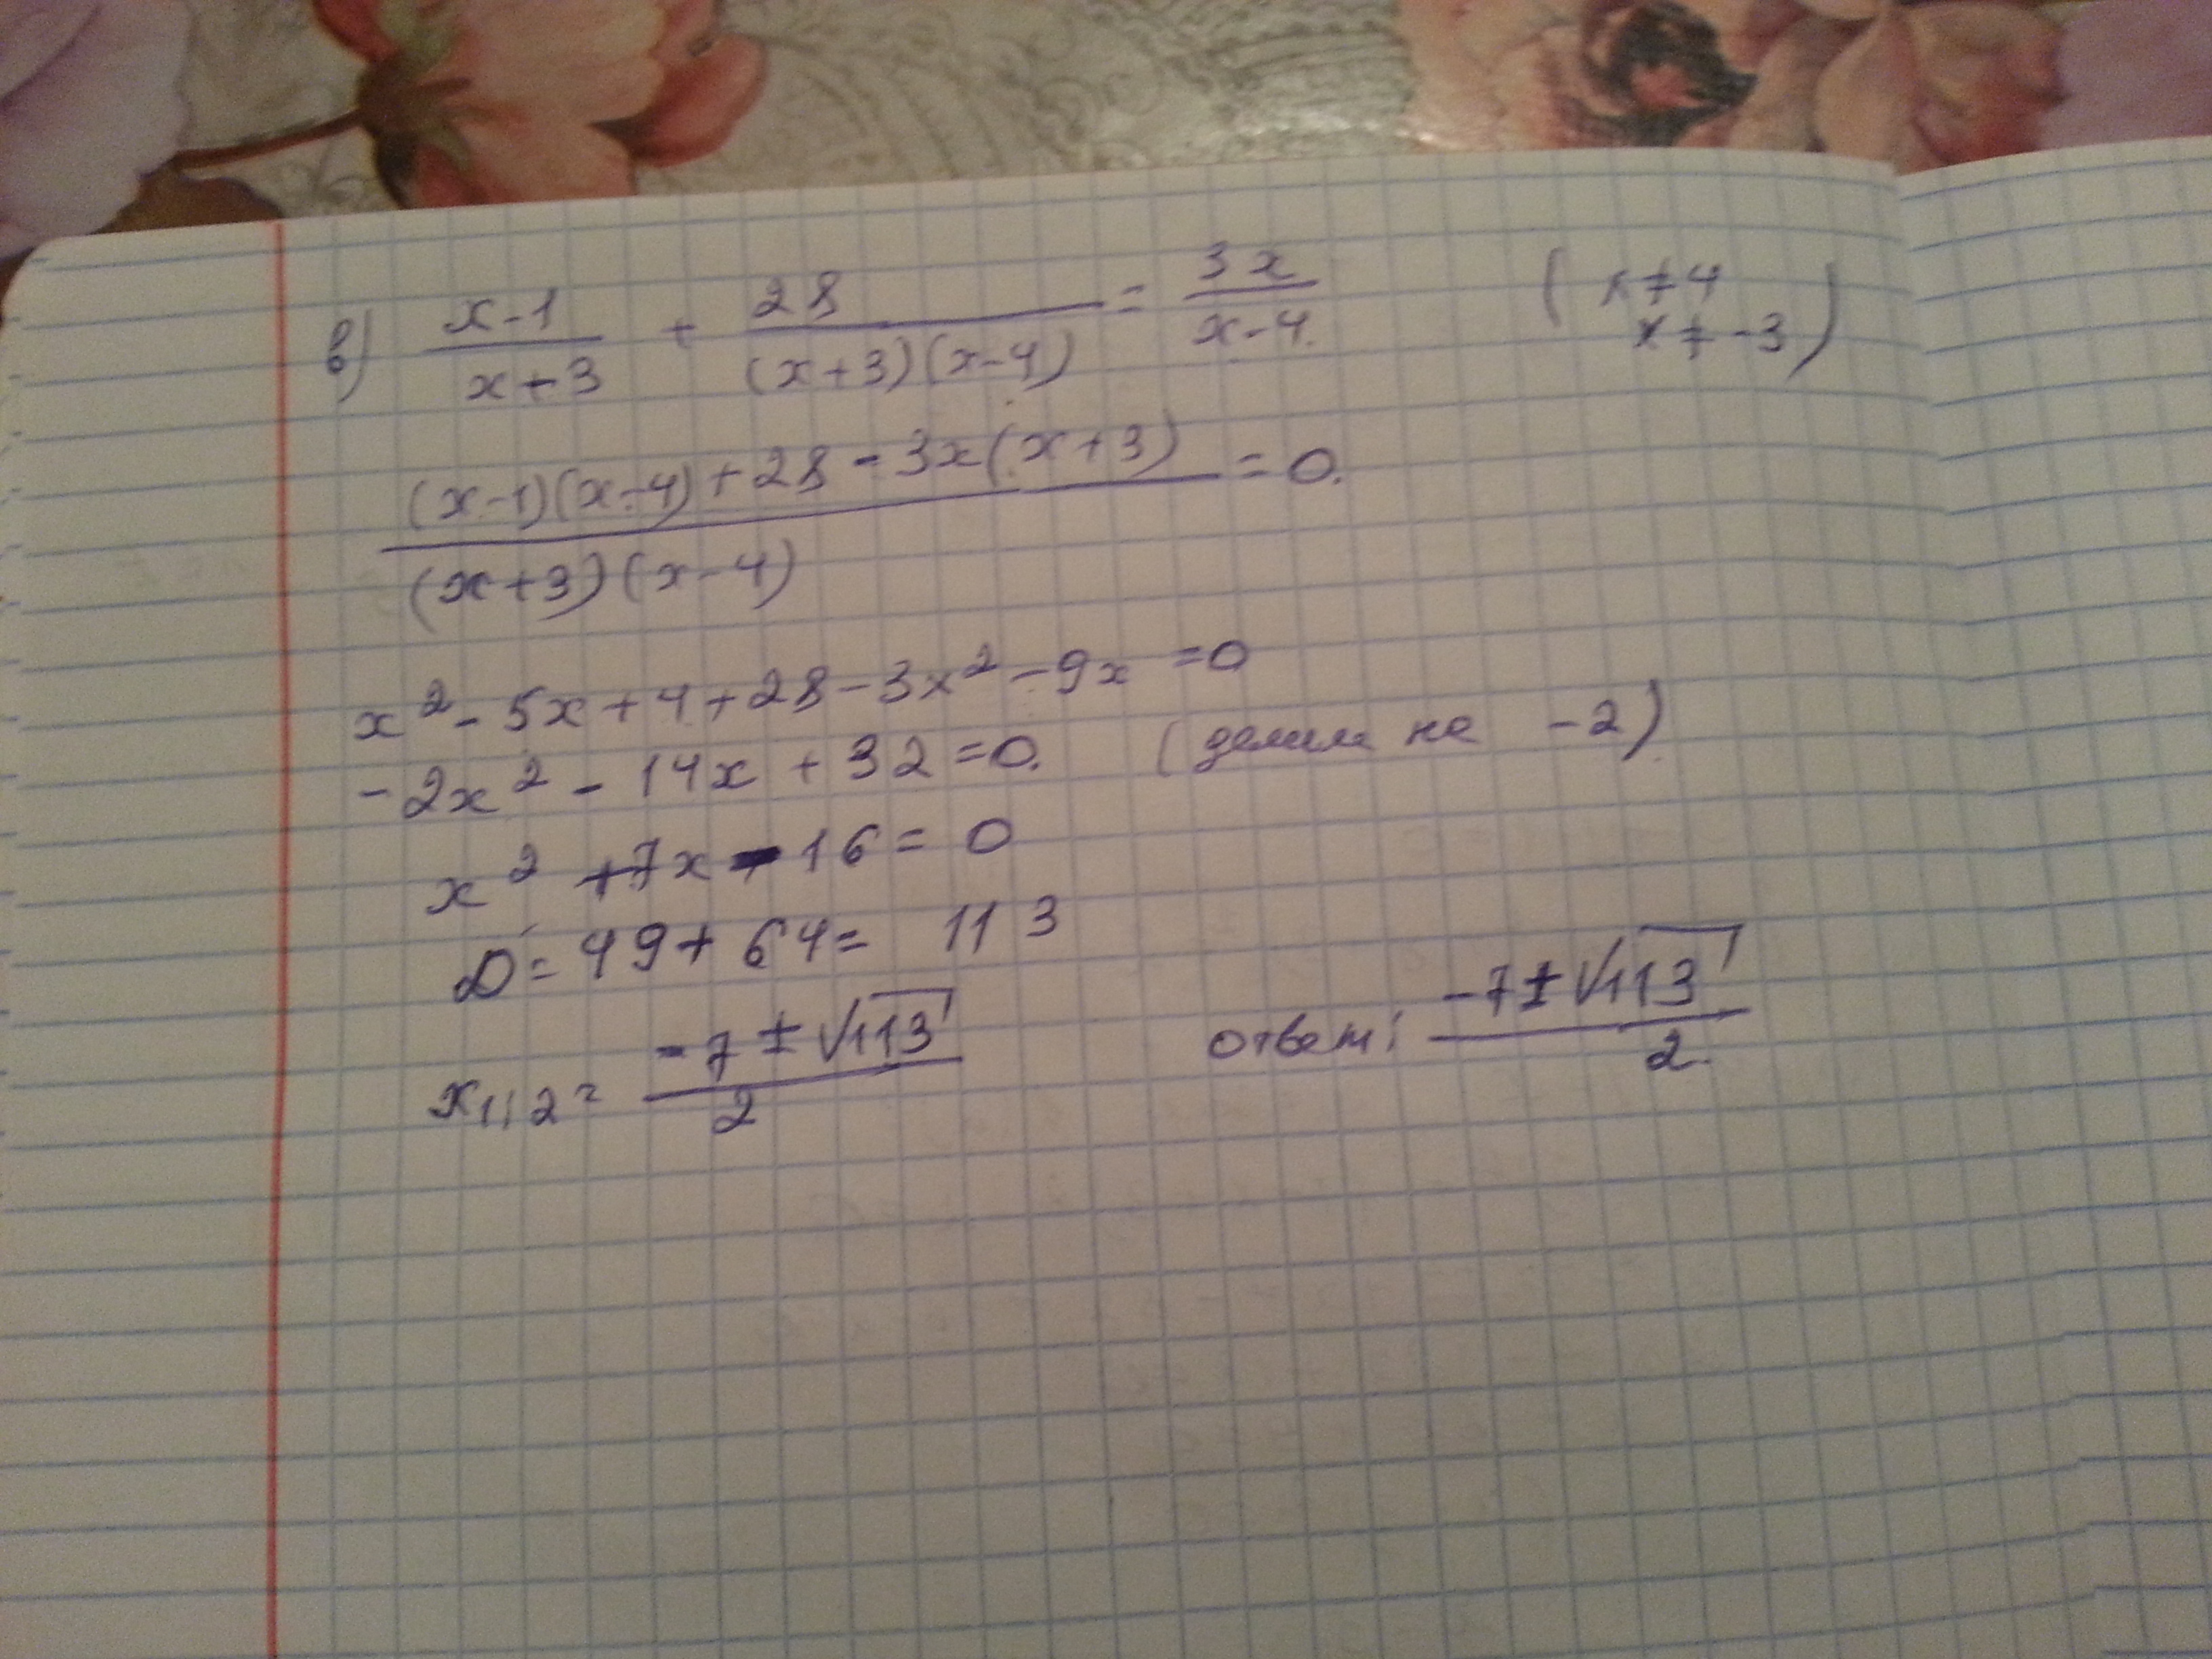 в) (x-1)/(x+3) + 28/((x+3)(x-4)) = 3x/(x-4) (x≠4 x≠-3)
((x-1)(x-4)+28-3x(x+3))/((x+3)(x-4)) = 0.
x² - 5x + 4 + 28 - 3x² - 9x = 0
-2x² - 14x + 32 = 0. (делим на -2)
x² + 7x - 16 = 0
D = 49 + 64 = 113
x₁;₂ = (-7 ± √113)/2 ответ: (-7 ± √113)/2.